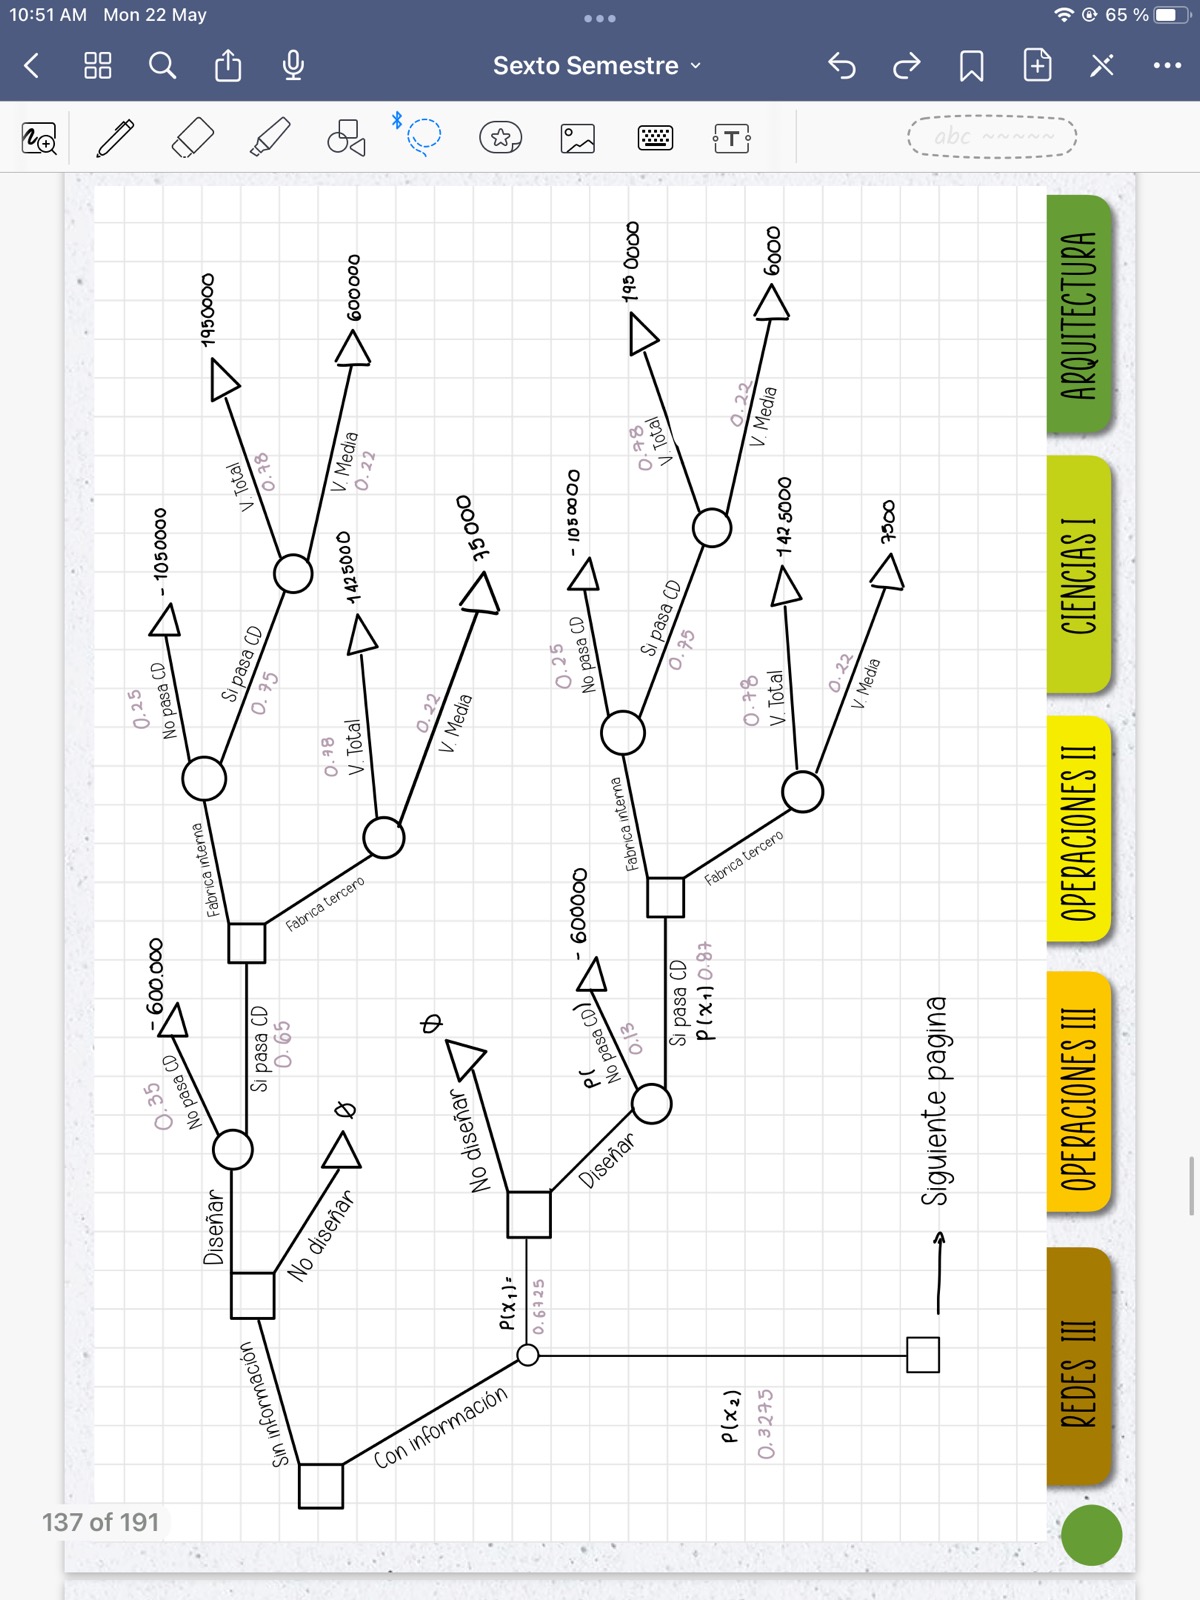 0.35
No pasa CD
- 600.000
Diseñar
Sin información
Si pasa CD
0.65
No diseñar
Ø
Fabrica interna
0.25
No pasa CD
- 1050000
Si pasa CD
0.75
V. Total
0.78
1950000
V. Media
0.22
600000
Fabrica tercero
0.78
V. Total
1425000
0.22
V. Media
75000
Con información
P(x₁)=
0.6725
No diseñar
Ø
Diseñar
P(
No pasa CD)
0.13
- 600000
Si pasa CD
P(x₁) 0.87
Fabrica interna
0.25
No pasa CD
- 1050000
Si pasa CD
0.75
0.78
V. Total
1950000
0.22
V. Media
6000
Fabrica tercero
0.78
V. Total
1425000
0.22
V. Media
7500
P(x₂)
0.3275
Siguiente pagina
REDES III
OPERACIONES III
OPERACIONES II
CIENCIAS I
ARQUITECTURA
137 of 191
10:51 AM Mon 22 May
65 %
Sexto Semestre
T
abc